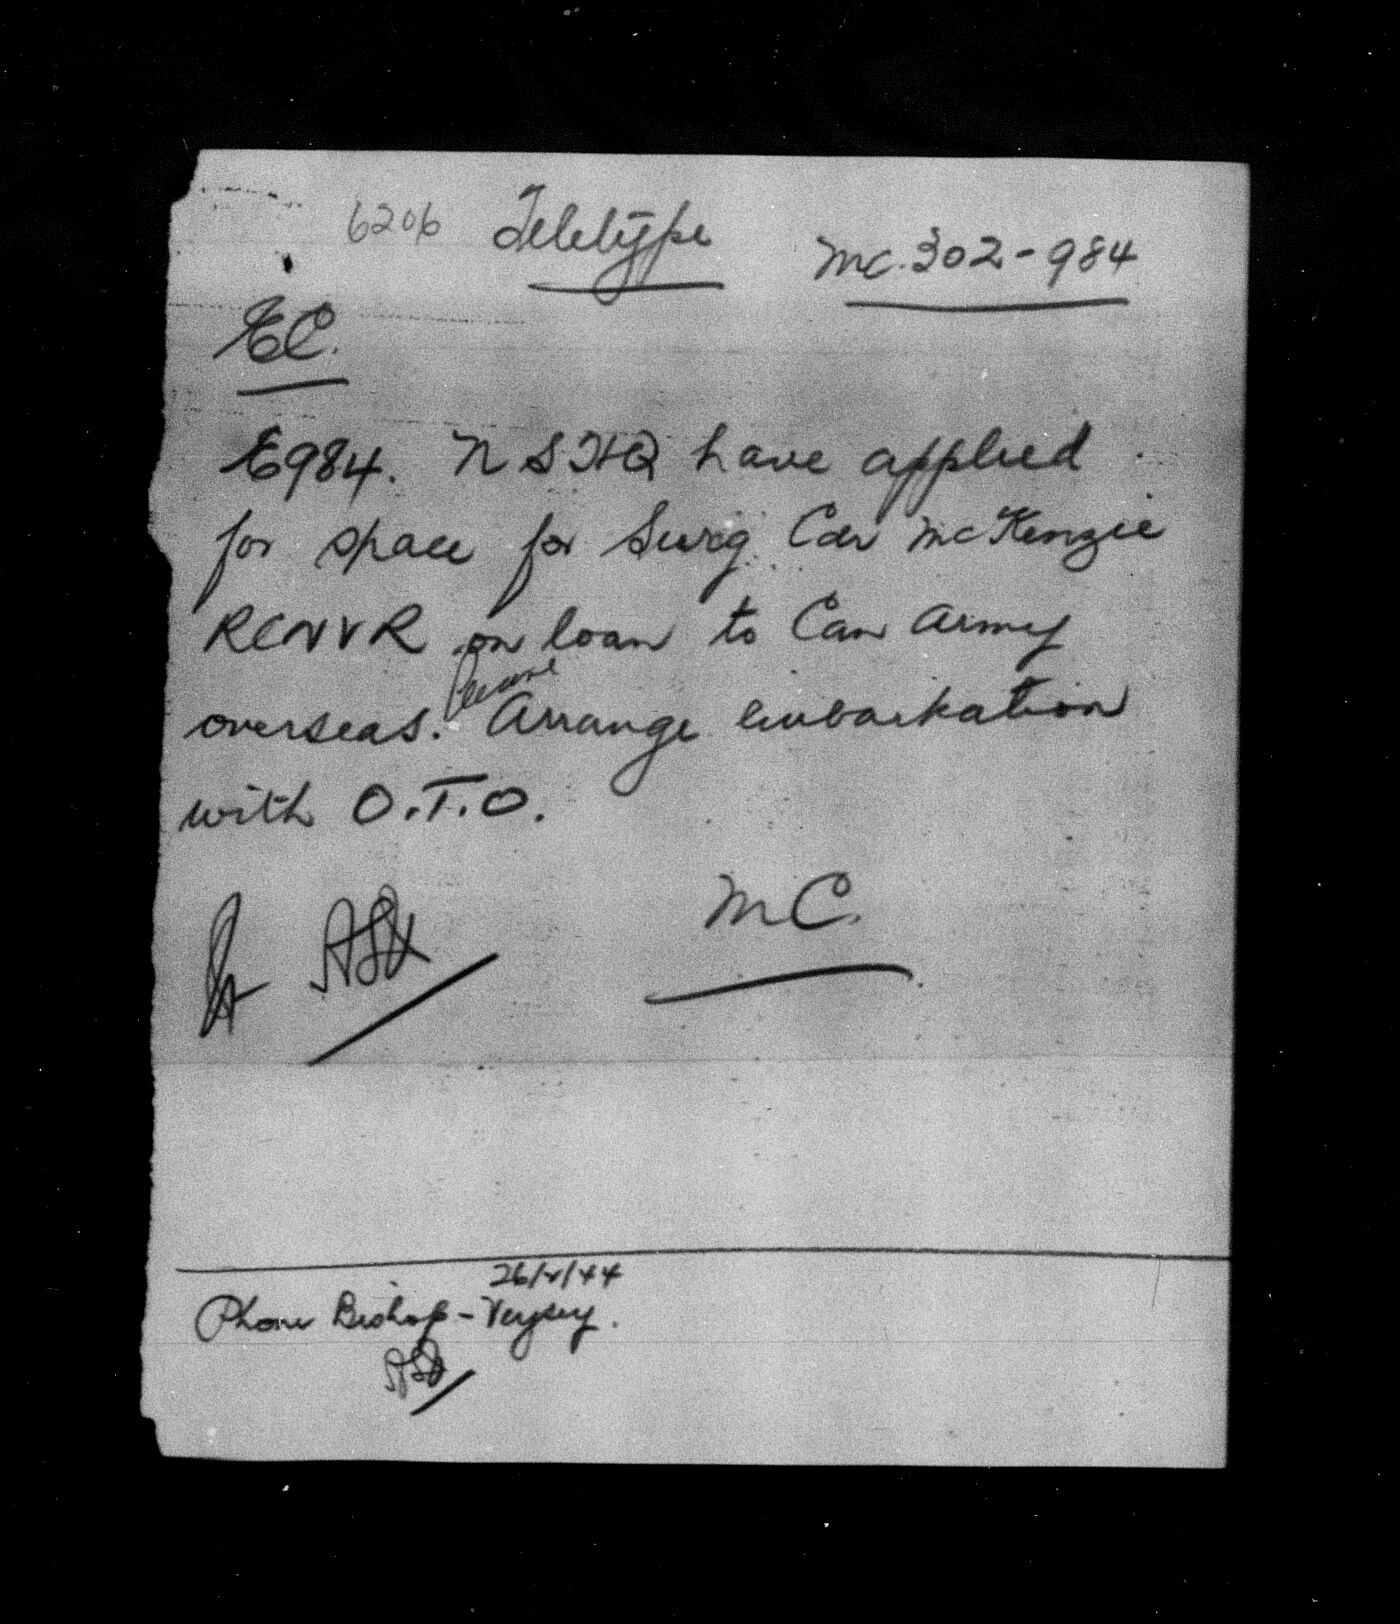 6206 Teletype MC.302-984
EC.
E984. NSHQ have applied
for space for Surg. Cdr McKenzie
RCNVR on loan to Can Army
overseas. Please Arrange embarkation
with O.T.O.
MC.
26/V/44
Phone Bishop - Veysey.